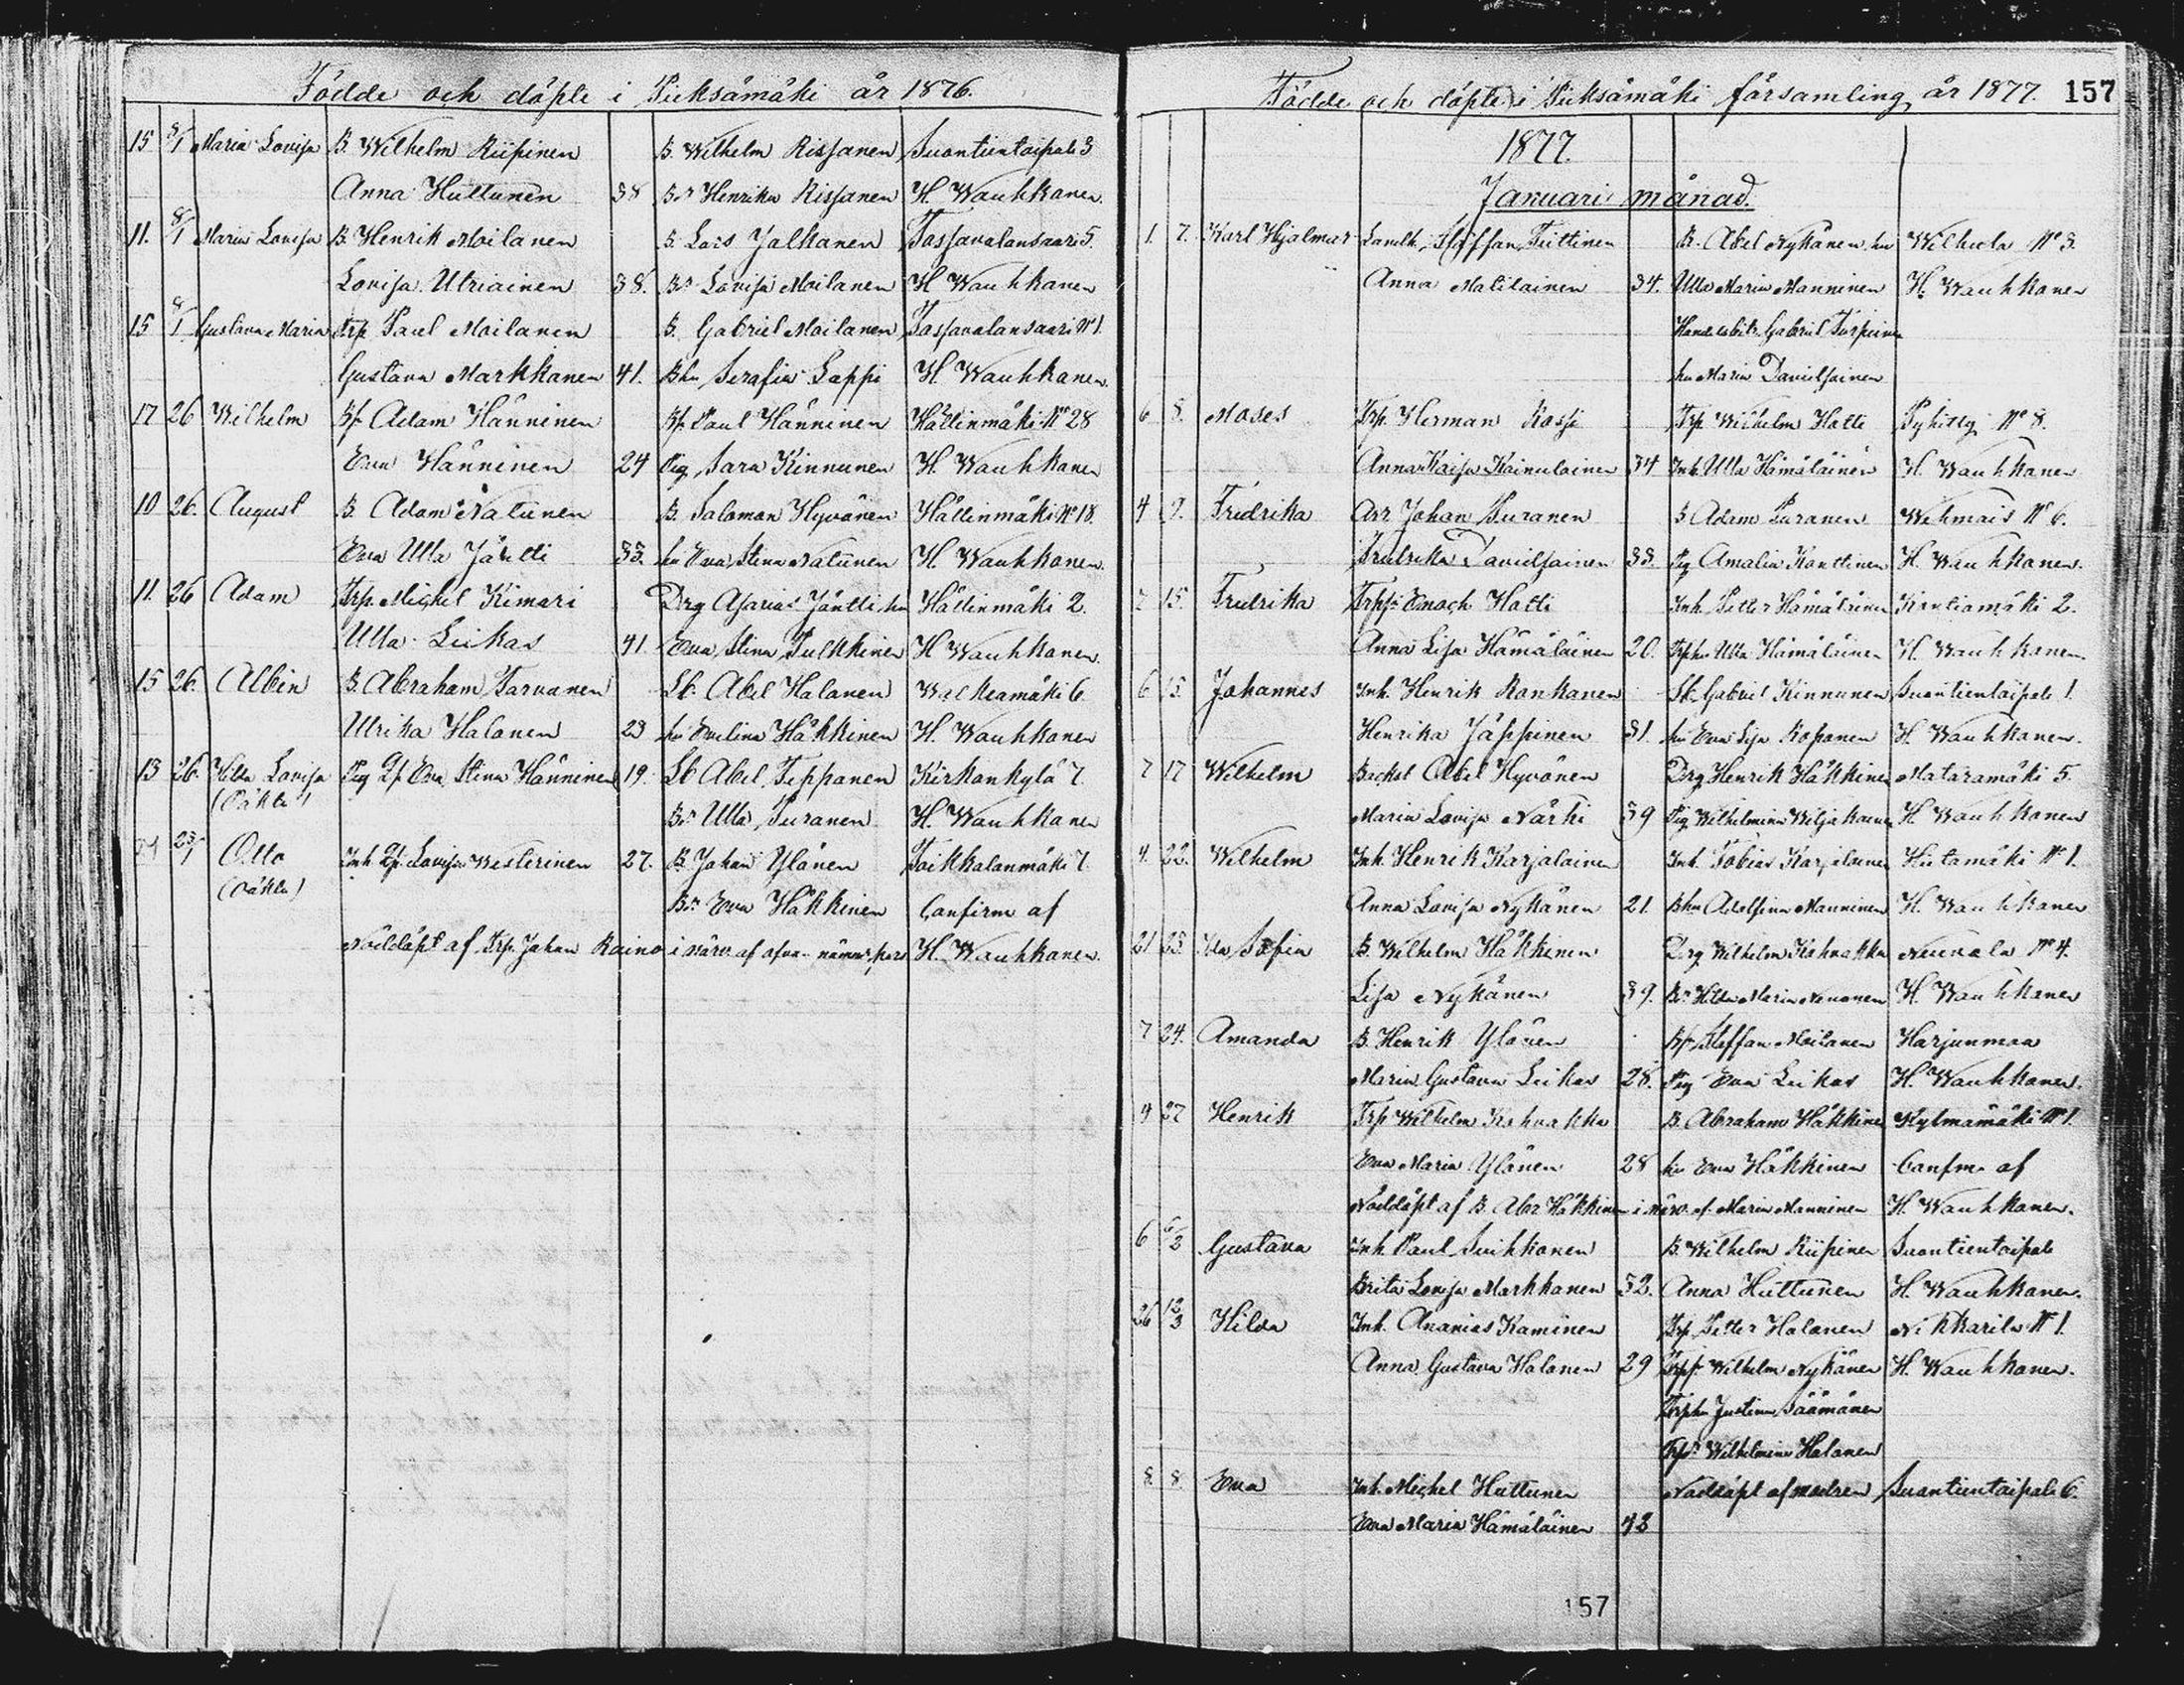 Födde och döpte i Pieksämäki år 1876.
15 8/1 Maria Lovisa B. Wilhelm Riipinen B. Wilhelm Rissanen Suontientaipale 3
Anna Huttunen 38 Bdr Henrika Rissanen H. Wauhkonen.
11. 8/1 Maria Lovisa B. Henrik Moilanen B. Lars Jalkanen Tossavalansaari 5.
Lovisa Utriainen 38. Bdr Lovisa Moilanen H Wauhkonen
15 8/1 Gustava Maria Trp Paul Moilanen B. Gabriel Moilanen Tossavalansaari No 1.
Gustava Markkanen 41. Bhu Serafia Lappi H Wauhkonen.
17 26 Wilhelm Bf Adam Hänninen Bf. Paul Hänninen Hällinmäki No 28
Eva Hänninen 24 Pig Sara Kinnunen H. Wauhkonen
10 26. August B. Adam Natunen B. Salomon Hyvönen Hällinmäki No 18.
Eva Ulla Jäntti 33. hu Eva Stina Natunen H. Wauhkonen.
11. 26 Adam Trp. Michel Kimari Drg Asarias Jäntti hu Hällinmäki 2.
Ulla Leikas 41. Eva Stina Pulkkinen H Wauhkonen.
15 26. Albin B. Abraham Tarvanen Lb. Abel Halonen Walkeamäki 6.
Ulrika Halonen 23 hu Evelina Häkkinen H. Wauhkonen
13 26. Hilda Lovisa Pig Qp Eva Stina Hänninen 19. Lb Abel Teppanen Kirkonkylä 7.
(Oäkta) Bdr Ulla Puranen H. Wauhkonen
23/1 Otto Inh Qp. Lovisa Westerinen 27. B. Johan Ylönen Toikkalanmäki 7.
(Oäkta) Bdr Eva Häkkinen Confirm af
Nöddöpt af Trp. Johan Raino i närv. af ofvan nämnd. pers H. Wauhkonen.
Födde och döpte i Pieksämäki församling år 1877. 157
1877.
Januari månad.
1. 7. Karl Hjalmar Landth. Staffan Tiittinen B. Abel Nykänen hu Wilhula No 3.
Anna Matilainen 34. Ulla Maria Manninen H. Wauhkonen
Handelsbitr. Gabriel Turpeinen
hu Maria Danielsainen
6 8. Moses Trp. Herman Kossi Trp Wilhelm Hatti Pyhitty No 8.
Anna Kaisa Kainulainen 34 Inh. Ulla Hämäläinen H. Wauhkonen
4 9. Fredrika Arr Johan Puranen B Adam Puranen Wehmais No 6.
Fredrika Danielsainen 33. Pig Amalia Konttinen H. Wauhkonen.
7 15. Fredrika Trps: Enoch Hatti Inh. Petter Hämäläinen Kontiomäki 2.
Anna Lisa Hämäläinen 20. Trphu Ulla Hämäläinen H. Wauhkonen.
6 15. Johannes Inh. Henrik Ronkanen Lb Gabriel Kinnunen Suontientaipale 1.
Henrika Jäppinen 31. hu Eva Lisa Roponen H. Wauhkonen.
7 17 Wilhelm Backst Abel Hyvönen Drg Henrik Häkkinen Mataramäki 5.
Maria Lovisa Närhi 39 Pig Wilhelmina Wiljakainen H Wauhkonen
4. 22. Wilhelm Inh. Henrik Karjalainen Inh. Tobias Karjalainen Hietamäki No 1.
Anna Lovisa Nykänen 21. Bhu Adolfina Manninen H. Wauhkonen
21 23. Ida Sofia B. Wilhelm Häkkinen Drg Wilhelm Kohvakka Neuvola No 4.
Lisa Nykänen 39. Bdr Hilda Maria Nenonen H. Wauhkonen
7 24. Amanda B. Henrik Ylönen Bf Steffan Moilanen Harjunmaa
Maria Gustava Leikas 28. Pig Eva Leikas H. Wauhkonen.
4 27 Henrik Trp Wilhelm Kohvakka B. Abraham Häkkinen Kylmämäki No 1.
Eva Maria Ylönen 28 hu Eva Häkkinen Confrm af
Nöddöpt af B. Abr Häkkinen i närv. af Maria Manninen H. Wauhkonen.
6 6/2 Gustava Inh Paul Suihkonen B. Wilhelm Riipinen Suontientaipale
Brita Lovisa Markkanen 32. Anna Huttunen H. Wauhkonen.
26 12/3 Hilda Inh. Ananias Kaminen Trp. Petter Halonen Nikkarila No 1.
Anna Gustava Halonen 29 Trps. Wilhelm Nykänen H. Wauhkonen.
Trphu Justina Säämänen
Trpdr Wilhelmina Halonen
8. 8. Eva Inh. Michel Huttunen Nöddöpt af modren Suontientaipale 6.
Eva Maria Hämäläinen 43
157